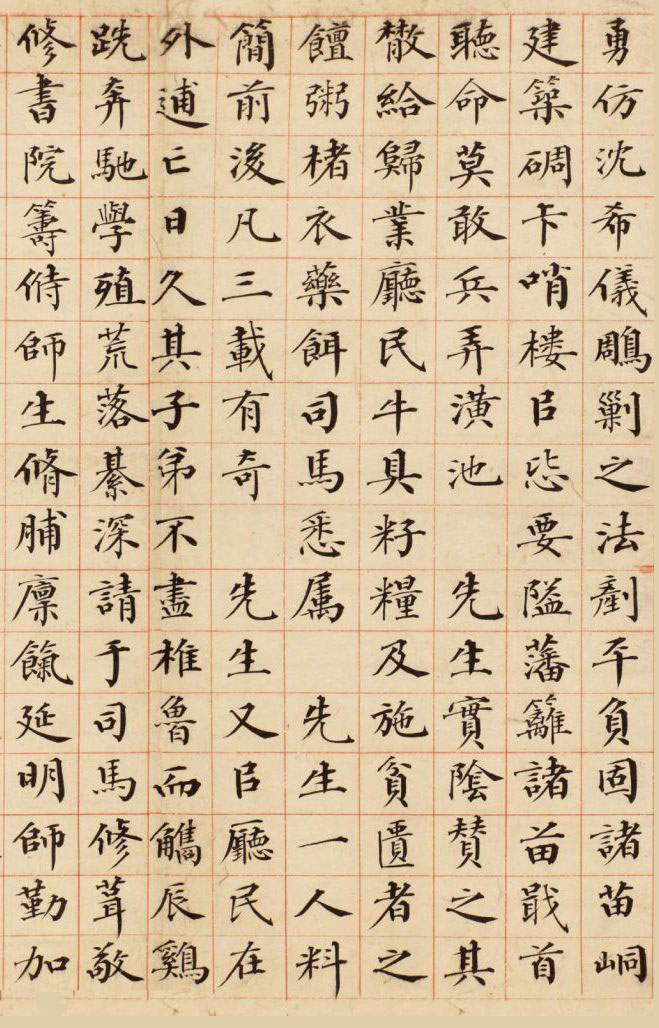 勇仿沈希儀鵰剿之法剷平負固諸苗峒
建築碉卡哨樓㠯要隘藩籬諸苗戢首
聽命莫敢兵弄潢池 先生實陰贊之其
散給歸業廳民牛具籽糧及施貧匱者之
饘粥楮衣藥餌司馬悉属 先生一人料
簡前後凡三載有奇 先生又㠯廳民在
外逋亡日久其子弟不盡椎魯而觿辰鷄
跣奔馳學殖荒落綦深請于司馬修葺敬
修書院籌偫師生脩脯廪餼延明師勤加